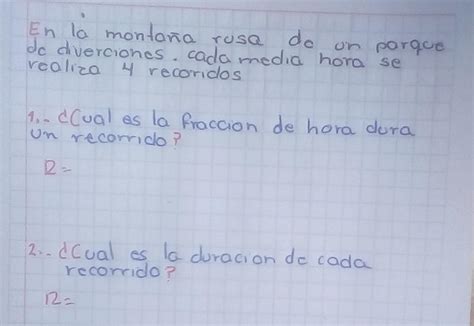 En la montaña rusa de un parque
de diverciones. cada media hora se
realiza 4 recoridos
1.- ¿Cual es la fraccion de hora dura
un recorrido?
R=
2.- ¿Cual es la duracion de cada
recorrido?
R=